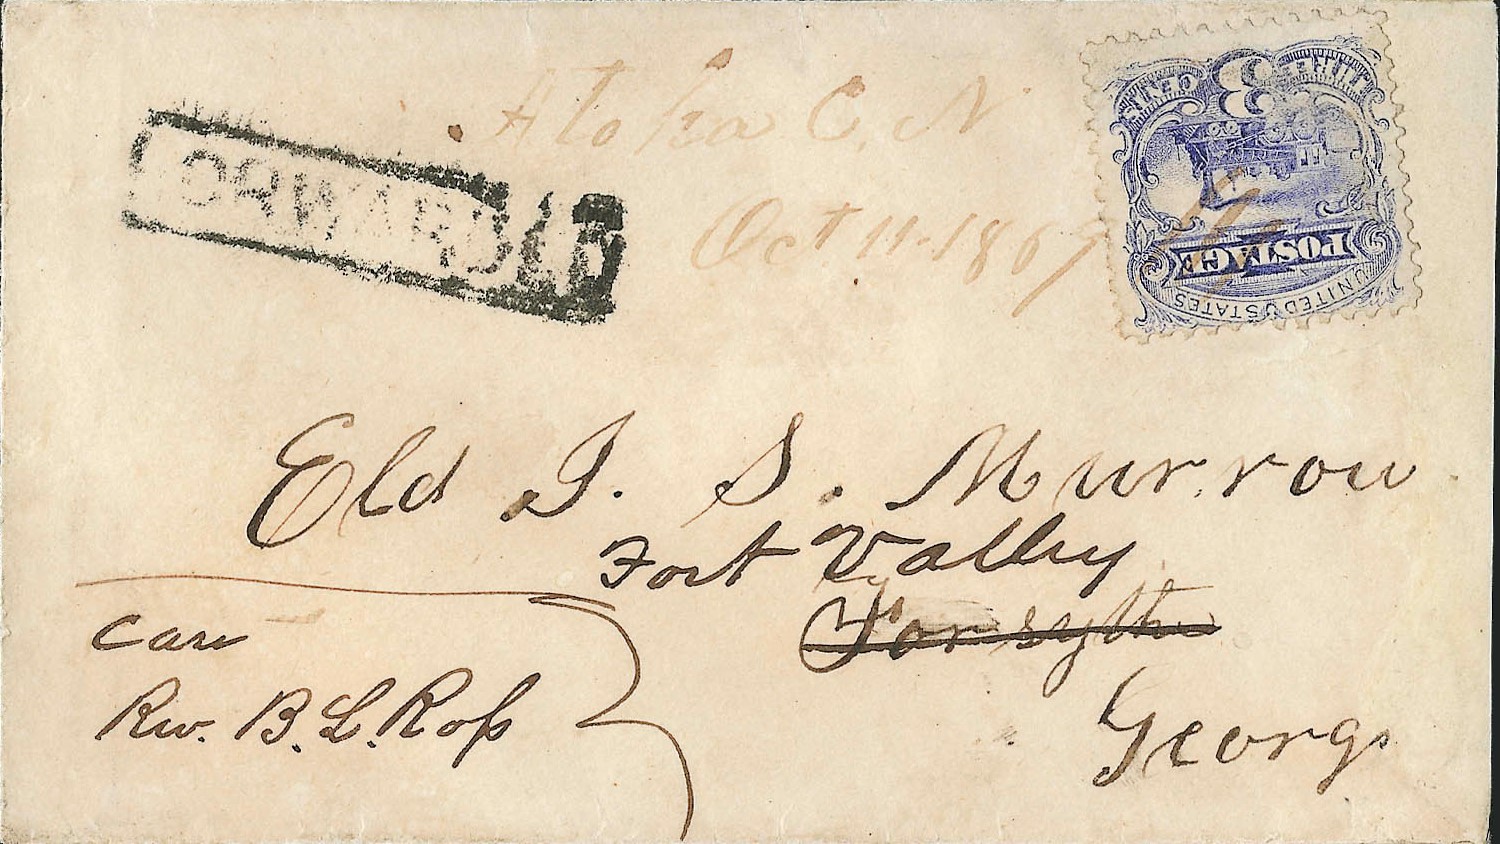 Atoka C. N
Oct 11. 1869
FORWARDED
THREE 3 CENTS
POSTAGE
UNITED STATES
Eld J. S. Murrow
Fort Valley
Forsythe
Georgi
Care
Rev. B. L. Ross